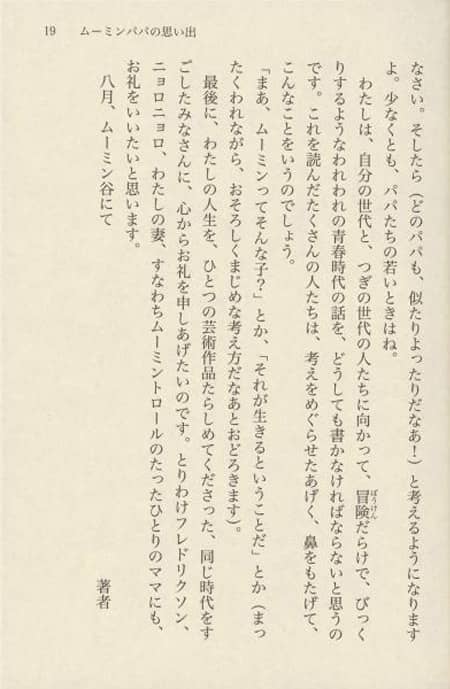 19　ムーミンパパの思い出
なさい。そしたら（どのパパも、似たりよったりだなあ！）と考えるようになります
よ。少なくとも、パパたちの若いときはね。
わたしは、自分の世代と、つぎの世代の人たちに向かって、冒険だらけで、びっく
ぼうけん
りするようなわれわれの青春時代の話を、どうしても書かなければならないと思うの
です。これを読んだたくさんの人たちは、考えをめぐらせたあげく、鼻をもたげて、
こんなことをいうのでしょう。
「まあ、ムーミンってそんな子？」とか、「それが生きるということだ」とか（まっ
たくわれながら、おそろしくまじめな考え方だなあとおどろきます）。
最後に、わたしの人生を、ひとつの芸術作品たらしめてくださった、同じ時代をす
ごしたみなさんに、心からお礼を申しあげたいのです。とりわけフレドリクソン、
ニョロニョロ、わたしの妻、すなわちムーミントロールのたったひとりのママにも、
お礼をいいたいと思います。
八月、ムーミン谷にて
著者